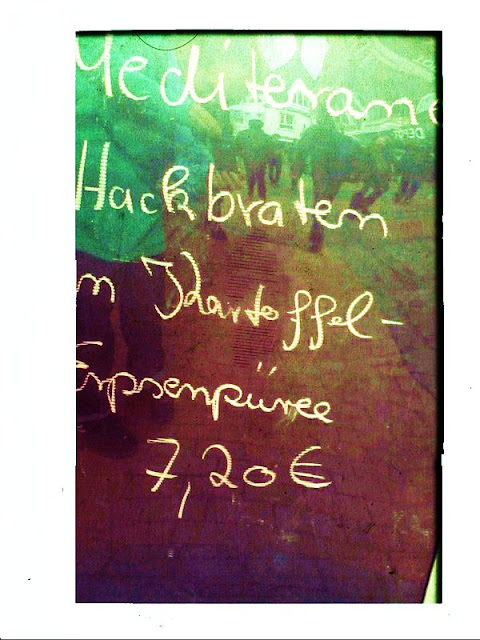 Mediterane
Hackbraten
m Kartoffel-
Erpsenpüree
7,20€